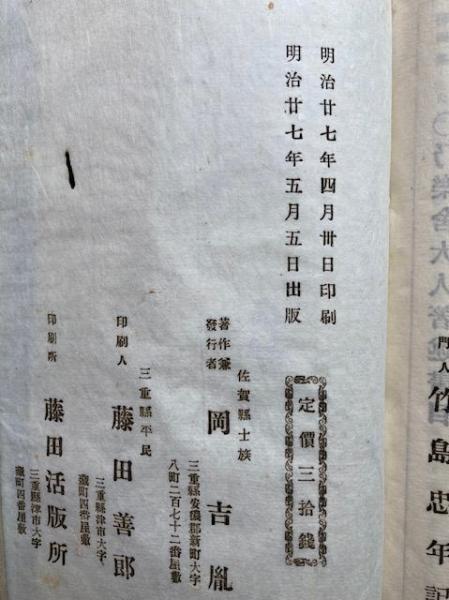 門人竹島忠年記
明治廿七年四月卅日印刷
明治廿七年五月五日出版
定價三拾錢
佐賀縣士族
著作兼
發行者
岡吉胤
三重縣安濃郡新町大字
八町二百七十二番屋敷
三重縣平民
印刷人
藤田善郎
三重縣津市大字
藏町四番屋敷
印刷所
藤田活版所
三重縣津市大字
藏町四番屋敷